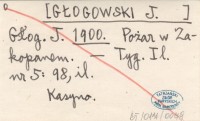 [GŁOGOWSKI J.]
Głog. J. 1900. Pożar w Za-
kopanem. — Tyg. Il.
nr 5. 98, il.
Kasyno.